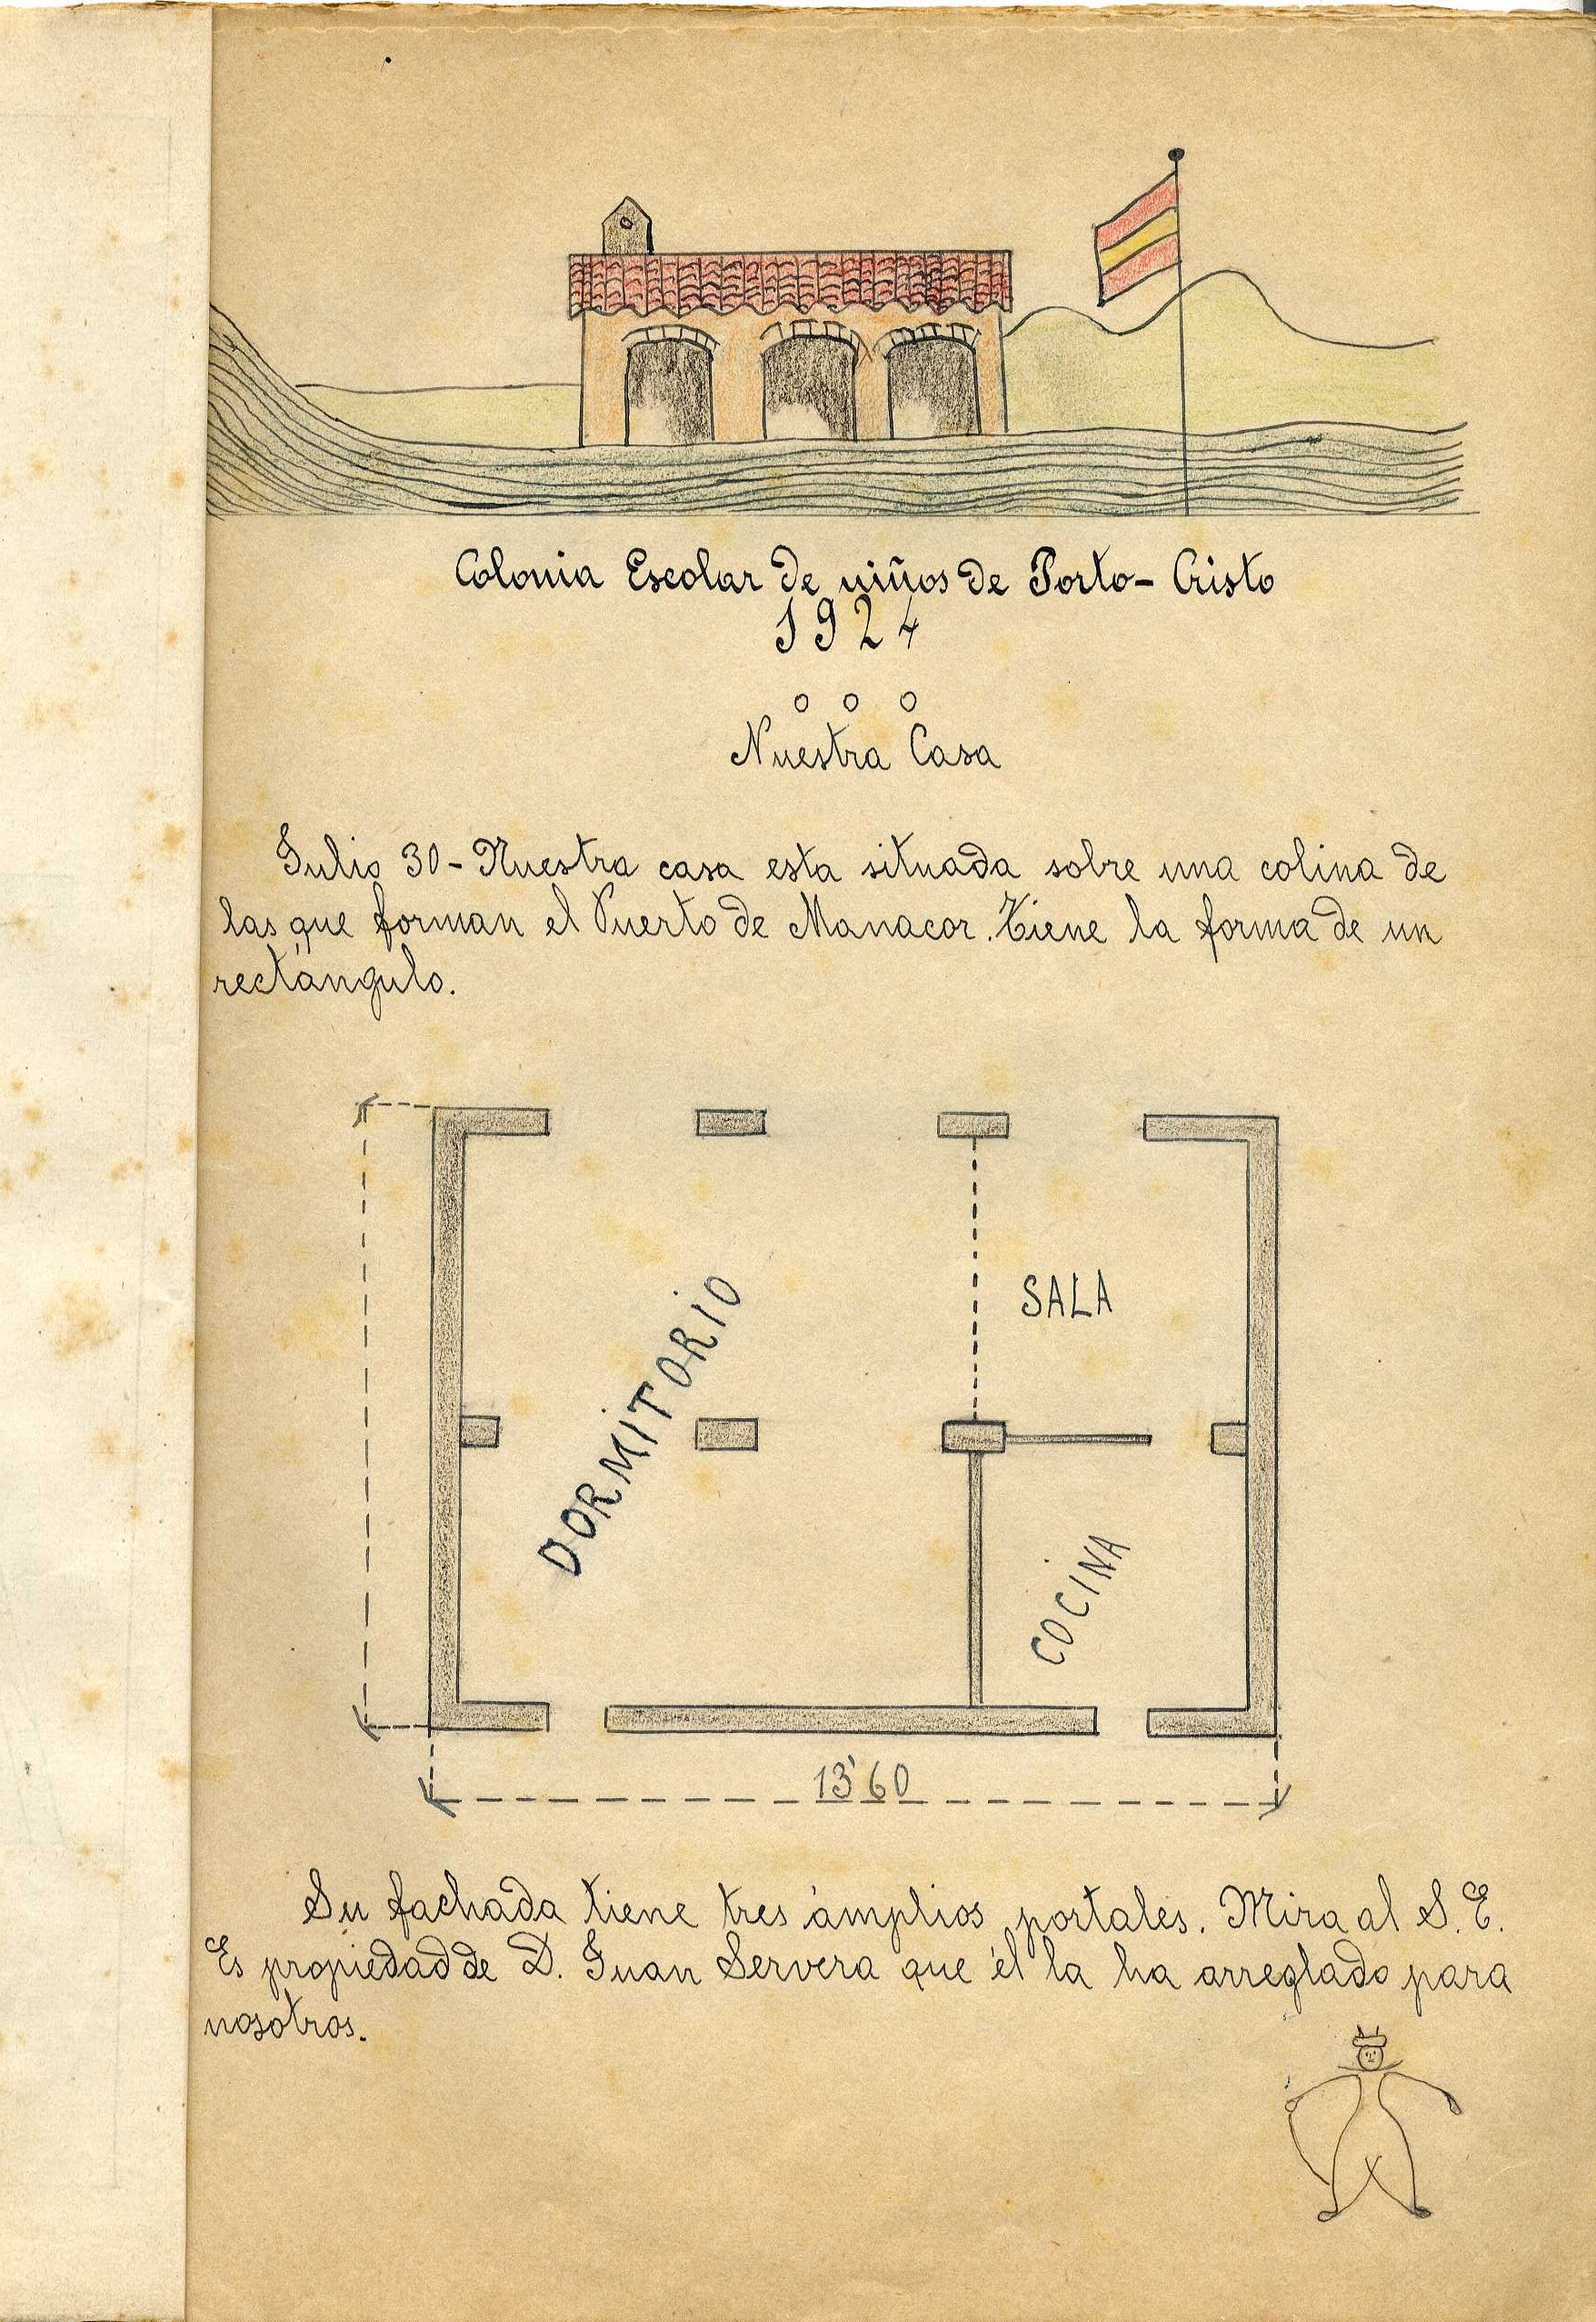 Colonia Escolar de niños de Porto-Cristo
1924
Nuestra Casa
Julio 30-Nuestra casa esta situada sobre una colina de
las que forman el Puerto de Manacor. Tiene la forma de un
rectángulo.
SALA
DORMITORIO
COCINA
13'60
Su fachada tiene tres ámplios portales. Mira al S. E.
Es propiedad de D. Juan Servera que él la ha arreglado para
nosotros.